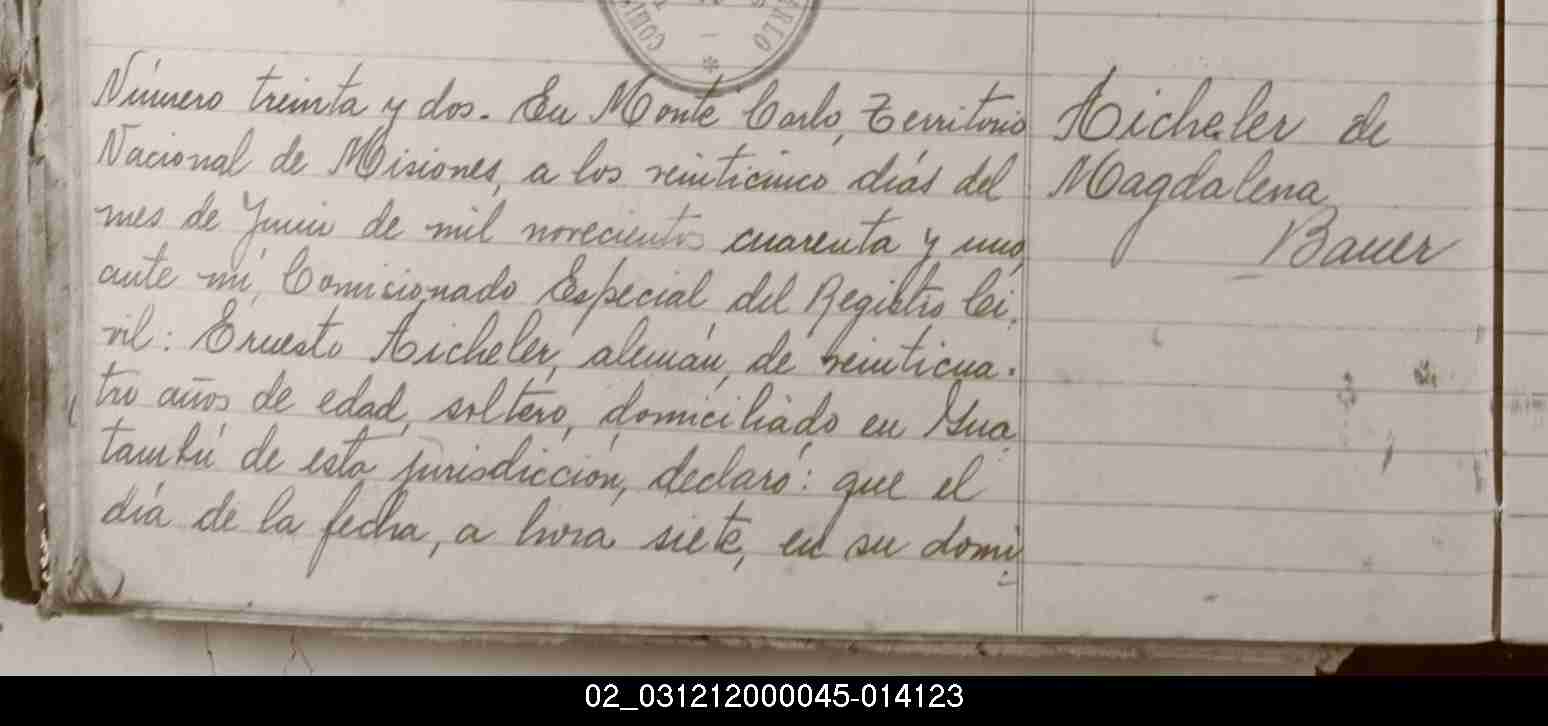 Número treinta y dos. En Monte Carlo, Territorio
Nacional de Misiones, a los veinticinco días del
mes de Junio de mil novecientos cuarenta y uno,
ante mí, Comicionado Especial del Registro Ci-
vil: Ernesto Aicheler, alemán, de veinticua-
tro años de edad, soltero, domiciliado en Gua-
tambú de esta jurisdicción, declaró: que el
día de la fecha, a hora siete, en su domi-
Aicheler de
Magdalena
Bauer
02_031212000045-014123